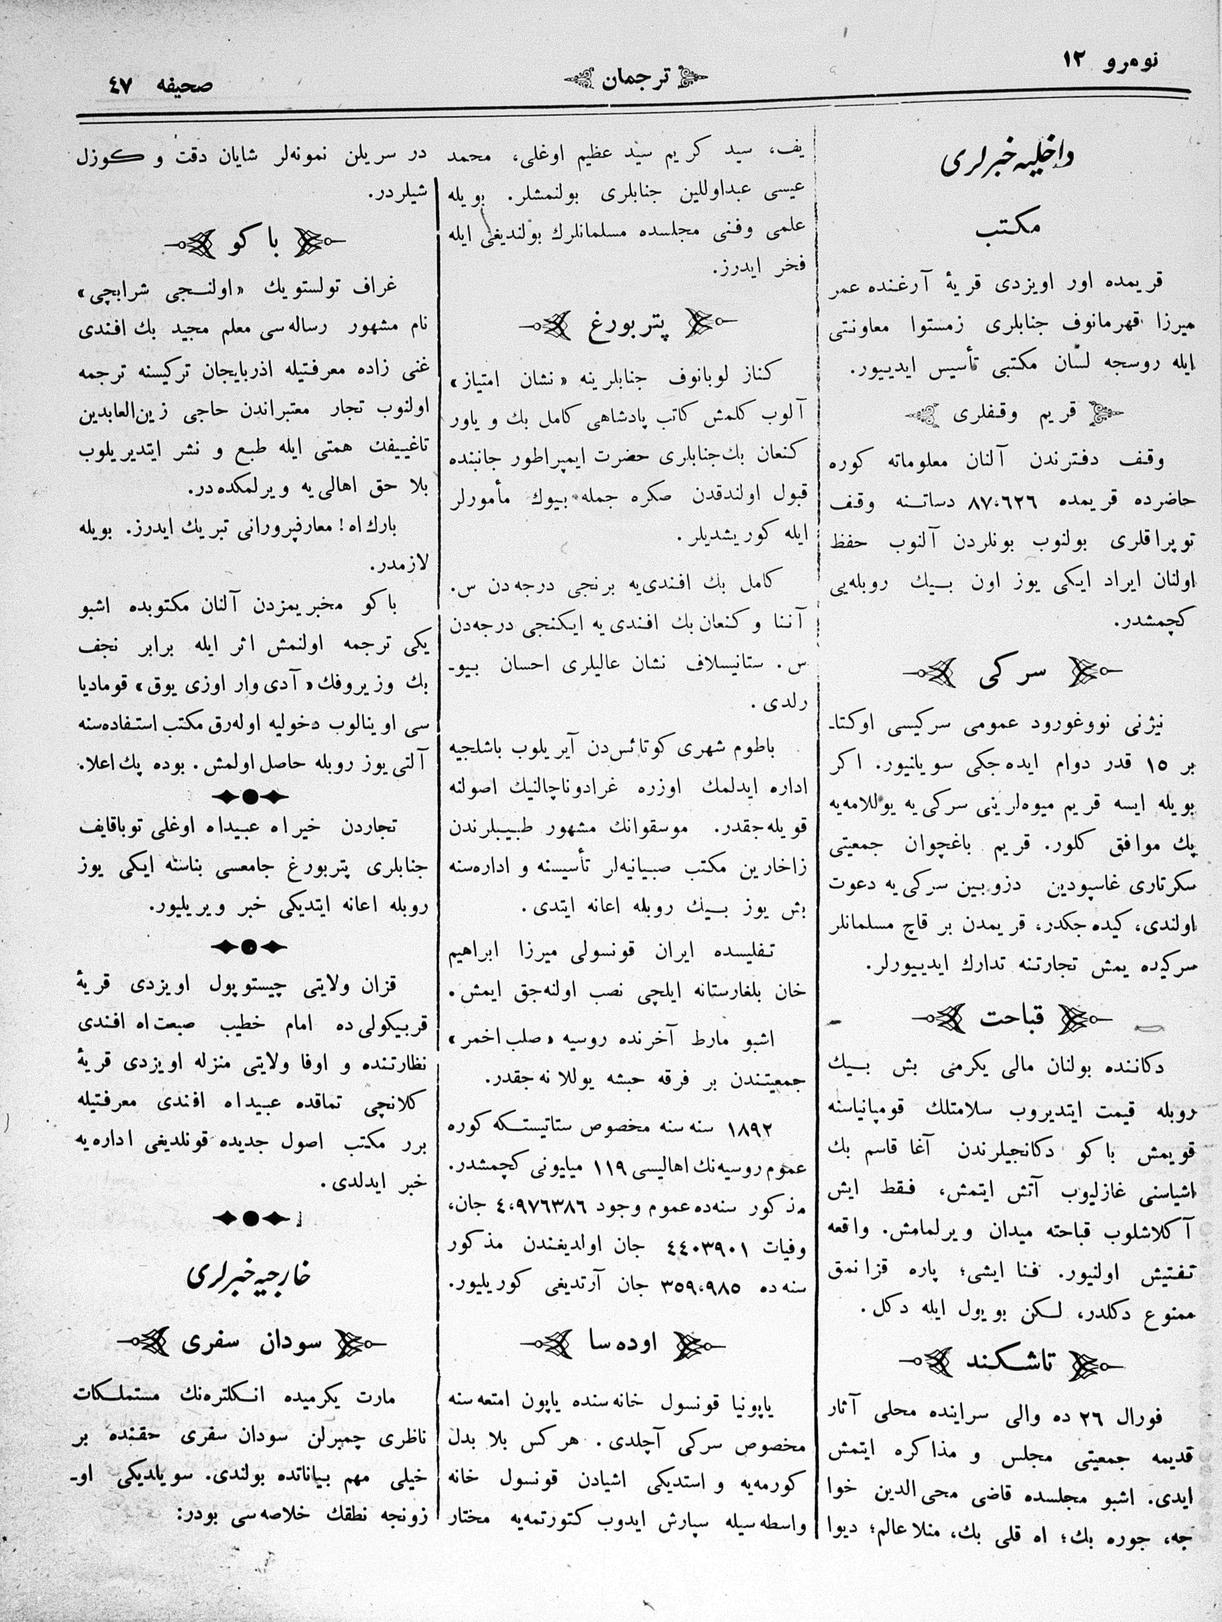 نومرو ١٢
ترجمان
صحیفه ٤٧
داخلیه خبرلری
مكتب
قریمده اور اویزدی قریۀ آرغنده عمر
میرزا قهرمانوف جنابلری زمستوا معاونتی
ایله روسجه لسان مكتبی تأسیس ایدییور.
قریم وقفلری
وقف دفترندن آلنان معلوماته كوره
حاضرده قریمده ٨٧،٦٢٦ دساتنه وقف
توپراقلری بولنوب بونلردن آلنوب حفظ
اولنان ایراد ایكی یوز اون بیك روبله‌یی
كچمشدر.
سركی
نیژنی نووغورود عمومی سركیسی اوكتا-
بر ١٥ قدر دوام ایده‌جكی سویلنیور. اكر
بویله ایسه قریم میوه‌لرینی سركی‌یه یوللامه‌یه
پك موافق كلور. قریم باغچوان جمعیتی
سكرتاری غاسپودین دزوبین سركی‌یه دعوت
اولندی، كیده‌جكدر، قریمدن بر قاچ مسلمانلر
سركیده یمش تجارتنه تدارك ایدییورلر.
قباحت
دكاننده بولنان مالی یكرمی بش بیك
روبله قیمت ایتدیروب سلامتلك قومپانیاسنه
قویمش باكو دكانجیلرندن آغا قاسم بك
اشیاسنی غازلیوب آتش ایتمش، فقط ایش
آكلاشلوب قباحته میدان ویرلمامش. واقعه
تفتیش اولنیور. فنا ایشی؛ پاره قزانمق
ممنوع دكلدر، لكن بو یول ایله دكل.
تاشكند
فورال ٢٦ ده والی سراینده محلی آثار
قدیمه جمعیتی مجلس و مذاكره ایتمش
ایدی. اشبو مجلسده قاضی محی الدین خوا
جه، جوره بك؛ اه قلی بك، منلا عالم؛ دیوا
یف، سید كریم سید عظیم اوغلی، محمد
عیسی عبداوللین جنابلری بولنمشلر. بویله
علمی وفنی مجلسده مسلمانلرك بولندیغی ایله
فخر ایدرز.
پتربورغ
كناز لوبانوف جنابلرینه «نشان امتیاز»
آلوب كلمش كاتب پادشاهی كامل بك و یاور
كنعان بك‌جنابلری حضرت ایمپراطور جانبنده
قبول اولندقدن صكره جمله بیوك مأمورلر
ایله كوریشدیلر.
كامل بك افندی‌یه برنجی درجه‌دن س.
آننا و كنعان بك افندی‌یه ایكنجی درجه‌دن
س. ستانیسلاف نشان عالیلری احسان بیو-
رلدی.
باطوم شهری كوتائس‌دن آیریلوب باشلجیه
اداره ایدلمك اوزره غرادوناچالنیك اصولنه
قویله‌جقدر. موسقوانك مشهور طبیبلرندن
زاخارین مكتب صبیانیه‌لر تأسیسنه و اداره‌سنه
بش یوز بیك روبله اعانه ایتدی.
تفلیسده ایران قونسولی میرزا ابراهیم
خان بلغارستانه ایلچی نصب اولنه‌جق ایمش.
اشبو مارط آخرنده روسیه «صلب اخمر»
جمعیتندن بر فرقه حبشه یوللانه‌جقدر.
١٨٩٢ سنه‌سنه مخصوص ستاتیستكه كوره
عموم روسیه‌نك اهالیسی ١١٩ میلیونی كچمشدر.
مذكور سنه‌ده عموم وجود ٤،٩٧٦٣٨٦ جان،
وفیات ٤٤٠٣٩٠١ جان اولدیغندن مذكور
سنه‌ده ٣٥٩،٩٨٥ جان آرتدیغی كوریلیور.
اوده‌سا
یاپونیا قونسول خانه‌سنده یاپون امتعه‌سنه
مخصوص سركی آچلدی. هركس بلا بدل
كورمه‌یه و استدیكی اشیادن قونسول خانه
واسطه‌سیله سپارش ایدوب كتورتمه‌یه مختار
در سریلن نمونه‌لر شایان دقت و كوزل
شیلردر.
باكو
غراف تولستویك «اولنجی شرابچی»
نام مشهور رساله‌سی معلم مجید بك افندی
غنی زاده معرفتیله اذربایجان تركیسنه ترجمه
اولنوب تجار معتبراندن حاجی زین‌العابدین
تاغییفك همتی ایله طبع و نشر ایتدیریلوب
بلا حق اهالی‌یه ویرلمكده‌در.
بارك‌اه! معارفپرورانی تبریك ایدرز. بویله
لازمدر.
باكو مخبریمزدن آلنان مكتوبده اشبو
یكی ترجمه اولنمش اثر ایله برابر نجف
بك وزیروفك «آدی وار اوزی یوق» قومادیا
سی اوینالوب دخولیه اوله‌رق مكتب استفاده‌سنه
آلتی یوز روبله حاصل اولمش. بوده پك اعلا.
تجاردن خیراه عبیداه اوغلی توباقایف
جنابلری پتربورغ جامعسی بناسنه ایكی یوز
روبله اعانه ایتدیكی خبر ویریلیور.
قزان ولایتی چیستوپول اویزدی قریۀ
قربیكولی‌ده امام خطیب صبعت‌اه افندی
نظارتنده و اوفا ولایتی منزله اویزدی قریۀ
كلانچی تماقده عبیداه افندی معرفتیله
برر مكتب اصول جدیده قونلدیغی اداره‌یه
خبر ایدلدی.
خارجیه خبرلری
سودان سفری
مارت یكرمیده انكلتره‌نك مستملكات
ناظری چمبرلن سودان سفری حقنده بر
خیلی مهم بیاناتده بولندی. سویلدیكی او-
زونجه نطقك خلاصه‌سی بودر: